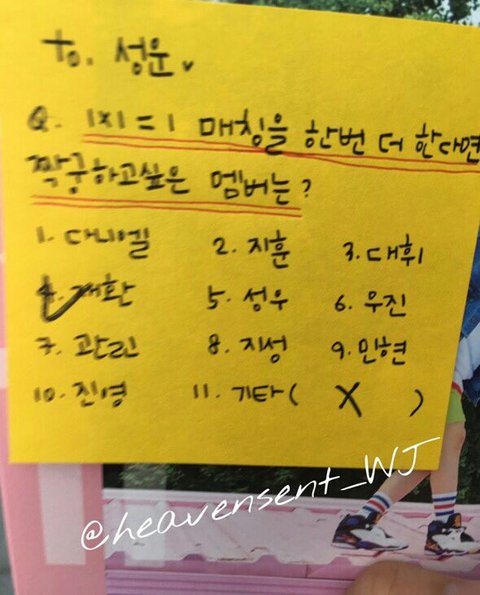 to. 성운
Q. 1x1=1 매칭을 한번 더 한다면
짝궁하고싶은 멤버는?
1. 다니엘 2. 지훈 3. 대휘
4. 재환 5. 성우 6. 우진
7. 관린 8. 지성 9. 민현
10. 진영 11. 기타( X )
@heavensent_WJ